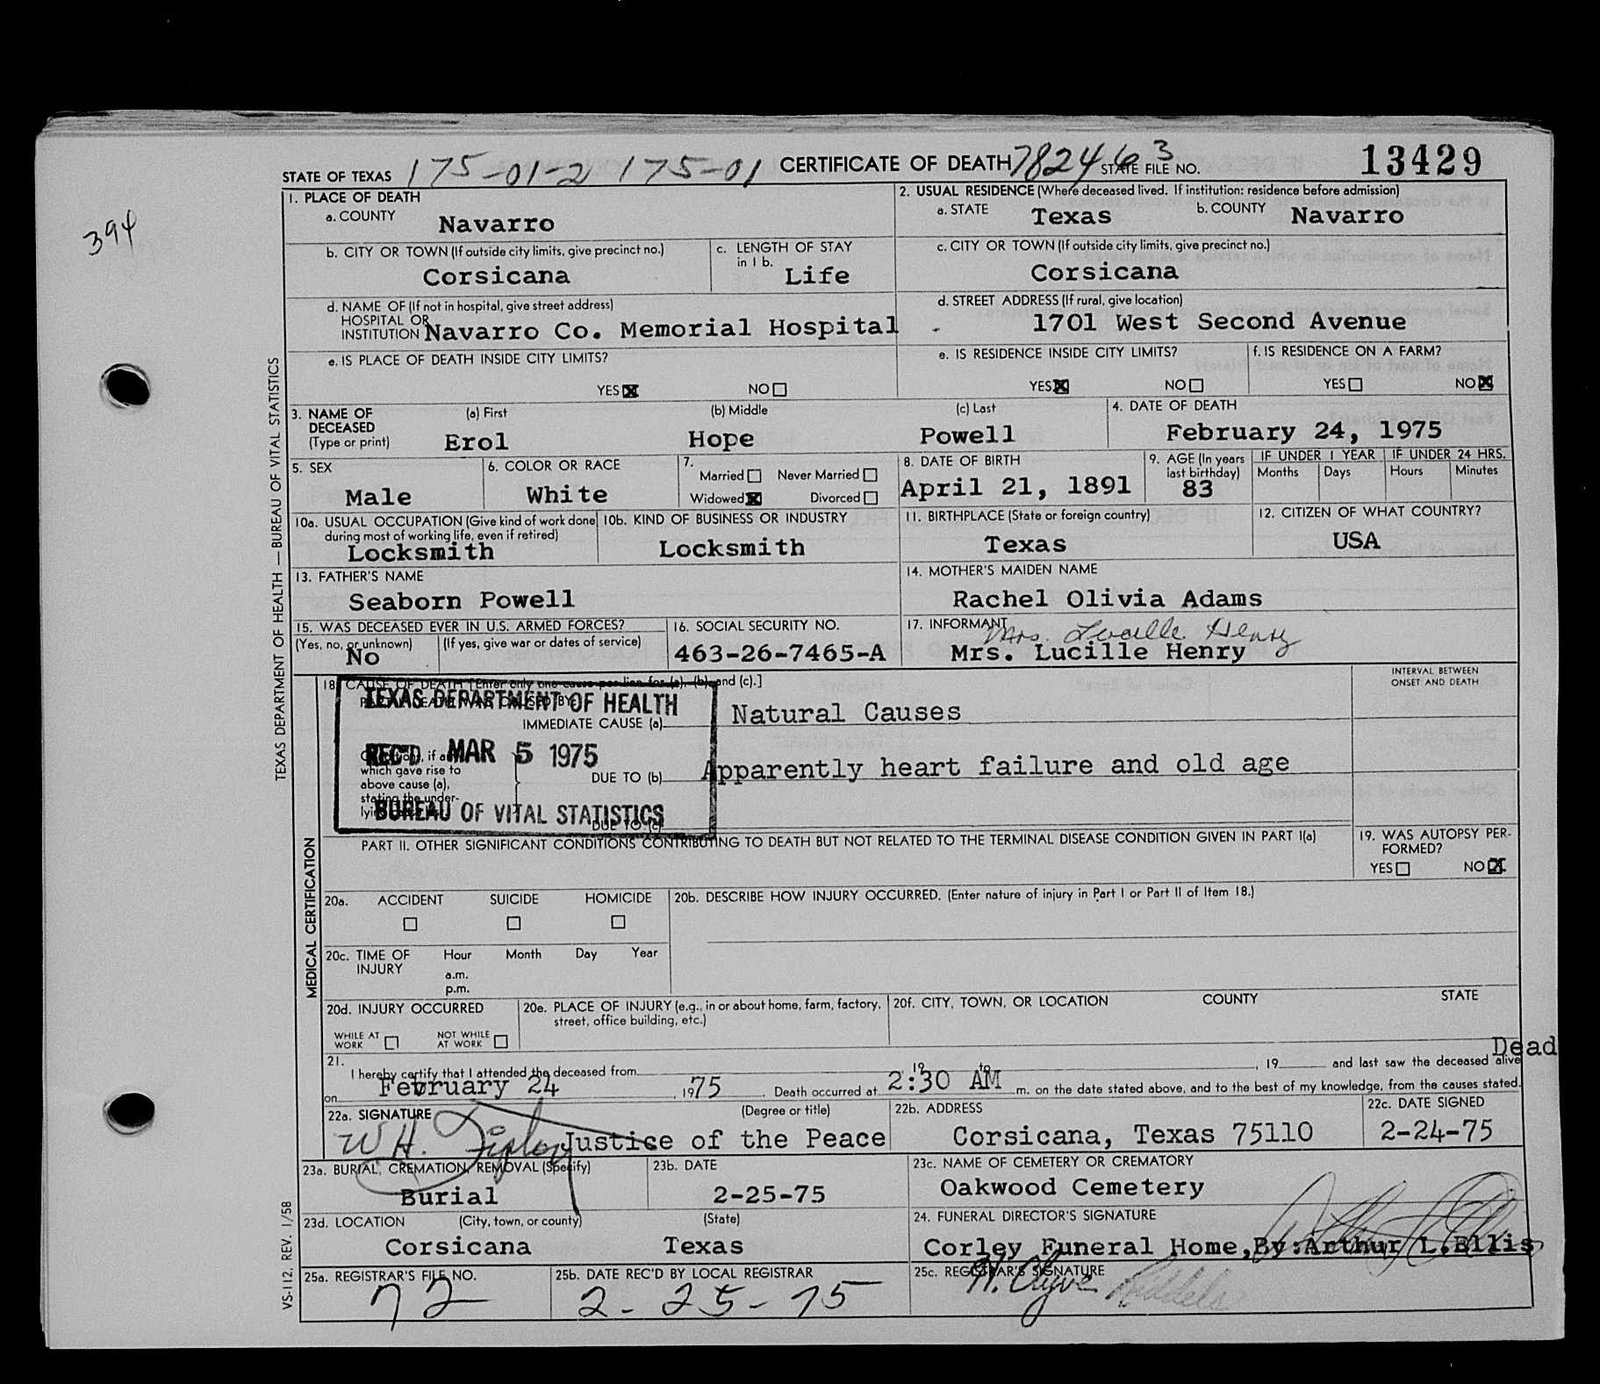 STATE OF TEXAS 175-01-2 175-01 CERTIFICATE OF DEATH 78246 3 STATE FILE NO. 13429
394
TEXAS DEPARTMENT OF HEALTH — BUREAU OF VITAL STATISTICS
1. PLACE OF DEATH
a. COUNTY Navarro
2. USUAL RESIDENCE (Where deceased lived. If institution: residence before admission)
a. STATE Texas b. COUNTY Navarro
b. CITY OR TOWN (If outside city limits, give precinct no.)
Corsicana
c. LENGTH OF STAY
in 1 b. Life
c. CITY OR TOWN (If outside city limits, give precinct no.)
Corsicana
d. NAME OF (If not in hospital, give street address)
HOSPITAL OR
INSTITUTION Navarro Co. Memorial Hospital
d. STREET ADDRESS (If rural, give location)
1701 West Second Avenue
e. IS PLACE OF DEATH INSIDE CITY LIMITS?
YES☒ NO☐
e. IS RESIDENCE INSIDE CITY LIMITS?
YES☒ NO☐
f. IS RESIDENCE ON A FARM?
YES☐ NO☒
3. NAME OF DECEASED (Type or print)
(a) First (b) Middle (c) Last
Erol Hope Powell
4. DATE OF DEATH
February 24, 1975
5. SEX
Male
6. COLOR OR RACE
White
7.
Married☐ Never Married☐
Widowed☒ Divorced☐
8. DATE OF BIRTH
April 21, 1891
9. AGE (In years
last birthday)
83
IF UNDER 1 YEAR
Months Days
IF UNDER 24 HRS.
Hours Minutes
10a. USUAL OCCUPATION (Give kind of work done
during most of working life, even if retired)
Locksmith
10b. KIND OF BUSINESS OR INDUSTRY
Locksmith
11. BIRTHPLACE (State or foreign country)
Texas
12. CITIZEN OF WHAT COUNTRY?
USA
13. FATHER'S NAME
Seaborn Powell
14. MOTHER'S MAIDEN NAME
Rachel Olivia Adams
15. WAS DECEASED EVER IN U.S. ARMED FORCES?
(Yes, no, or unknown) (If yes, give war or dates of service)
No
16. SOCIAL SECURITY NO.
463-26-7465-A
17. INFORMANT
Mrs. Lucille Henry
Mrs. Lucille Henry
MEDICAL CERTIFICATION
18. CAUSE OF DEATH [Enter only one cause per line for (a), (b) and (c).]
INTERVAL BETWEEN
ONSET AND DEATH
TEXAS DEPARTMENT OF HEALTH
IMMEDIATE CAUSE (a) Natural Causes
REC'D MAR 5 1975
which gave rise to
above cause (a),
stating the under-
DUE TO (b) Apparently heart failure and old age
BUREAU OF VITAL STATISTICS
DUE TO (c)
PART II. OTHER SIGNIFICANT CONDITIONS CONTRIBUTING TO DEATH BUT NOT RELATED TO THE TERMINAL DISEASE CONDITION GIVEN IN PART I(a)
19. WAS AUTOPSY PER-
FORMED?
YES☐ NO☒
20a. ACCIDENT SUICIDE HOMICIDE
☐ ☐ ☐
20b. DESCRIBE HOW INJURY OCCURRED. (Enter nature of injury in Part I or Part II of Item 18.)
20c. TIME OF INJURY Hour Month Day Year
a.m.
p.m.
20d. INJURY OCCURRED
WHILE AT WORK ☐ NOT WHILE AT WORK ☐
20e. PLACE OF INJURY (e.g., in or about home, farm, factory,
street, office building, etc.)
20f. CITY, TOWN, OR LOCATION COUNTY STATE
21.
I hereby certify that I attended the deceased from 19 to , 19 and last saw the deceased alive Dead
on February 24 , 1975 . Death occurred at 2:30 AM m. on the date stated above, and to the best of my knowledge, from the causes stated.
22a. SIGNATURE (Degree or title)
W.H. Justice of the Peace
22b. ADDRESS
Corsicana, Texas 75110
22c. DATE SIGNED
2-24-75
23a. BURIAL, CREMATION, REMOVAL (Specify)
Burial
23b. DATE
2-25-75
23c. NAME OF CEMETERY OR CREMATORY
Oakwood Cemetery
23d. LOCATION (City, town, or county) (State)
Corsicana Texas
24. FUNERAL DIRECTOR'S SIGNATURE
Corley Funeral Home, By: Arthur L. Ellis
25a. REGISTRAR'S FILE NO.
72
25b. DATE REC'D BY LOCAL REGISTRAR
2-25-75
25c. REGISTRAR'S SIGNATURE
VS-112. REV. 1/58